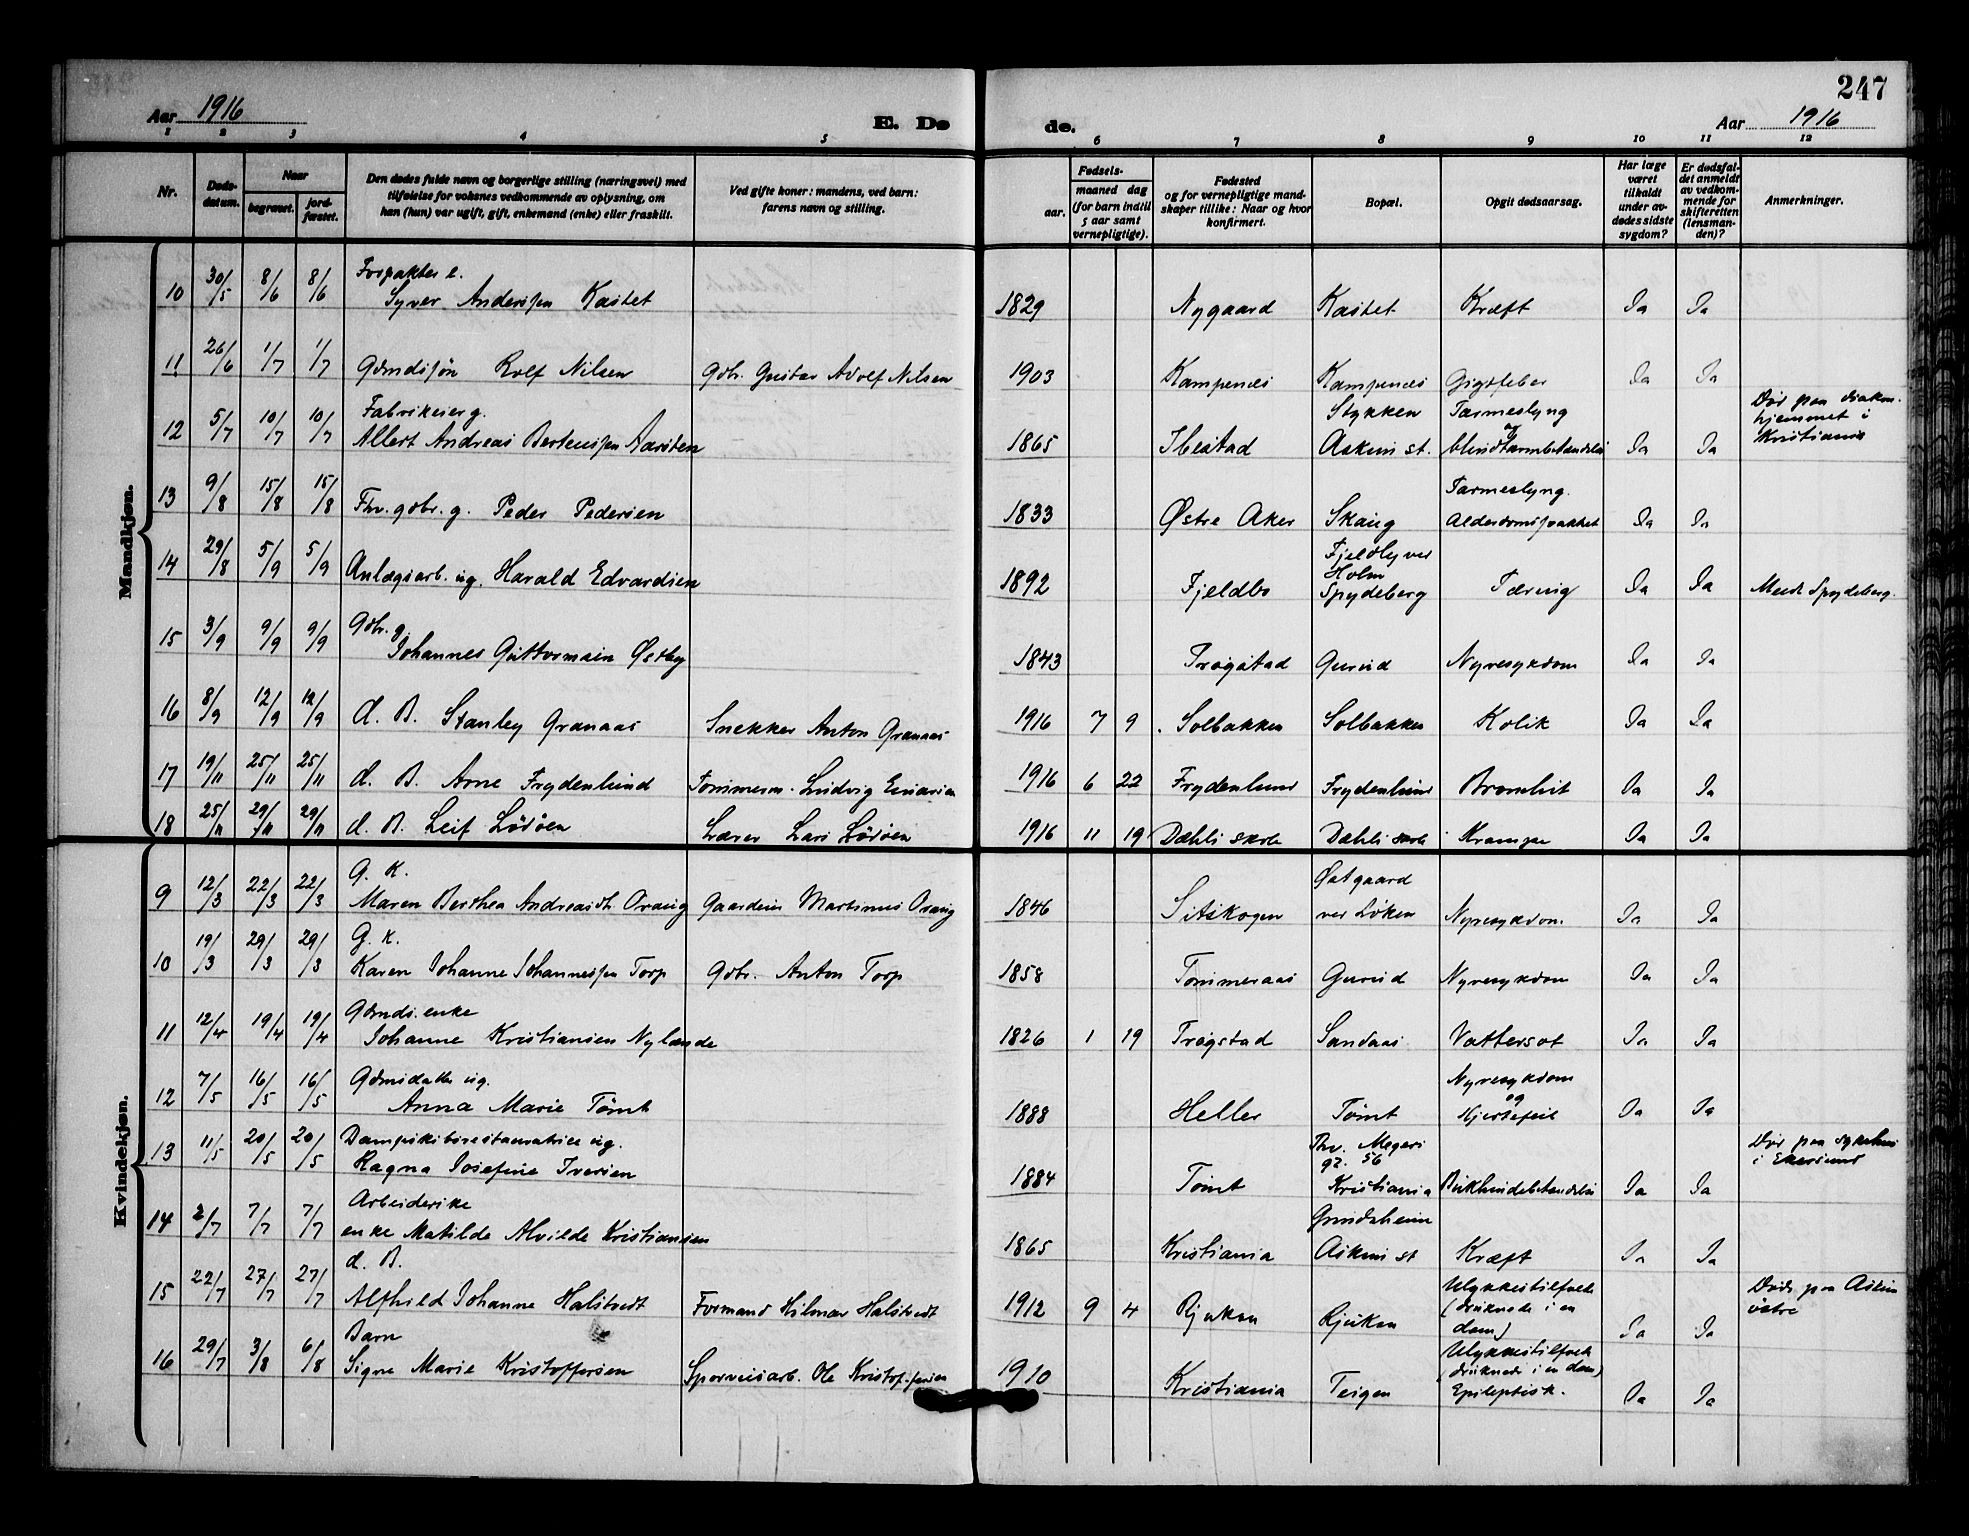 247
Aar 1916 E. Dø de. Aar 1916
1 2 3 4 5 6 7 8 9 10 11 12
Nr. Døds-datum. Naar begravet. jord-fæstet. Den dødes fulde navn og borgerlige stilling (næringsvei) med tilføielse for voksnes vedkommende av oplysning, om han (hun) var ugift, gift, enkemand (enke) eller fraskilt. Ved gifte koner: mandens, ved barn: farens navn og stilling. Fødsels- aar. maaned dag (for barn indtil 5 aar samt vernepligtige). Fødested og for vernepligtige mandskaper tillike: Naar og hvor konfirmert. Bopæl. Opgit dødsaarsag. Har læge været tilkaldt under avdødes sidste sygdom? Er dødsfaldet anmeldt av vedkommende for skifteretten (lensmanden)? Anmerkninger.
Mandkjøn.
10 30/5 8/6 8/6 Forpakter e. Syver Anderssen Kastet 1829 Nygaard Kastet Kræft Ja Ja
11 26/6 1/7 1/7 Gdmdssøn Rolf Nilsen Gdbr. Gustav Adolf Nilsen 1903 Kampenes Kampenes Gigtfeber Ja Ja
12 5/7 10/7 10/7 Fabrikeier g. Albert Andreas Berteussen Aarsten 1865 Ibestad Stykken Askim st. Tarmeslyng og blindtarmbetændelse Ja Ja Død paa diakonhjemmet i Kristiania
13 9/8 15/8 15/8 Fhv. gdbr. g. Peder Pedersen 1833 Østre Aker Skaug Tarmeslyng. Alderdomssvakhet Ja Ja
14 29/8 5/9 5/9 Anlægsarb. ug. Harald Edvardsen 1892 Fjeldbo Fjeldby ved Holm Spydeberg Tæring Ja Ja Meldt Spydeberg.
15 3/9 9/9 9/9 Gdbr. g. Johannes Guttormsen Østby 1843 Trøgstad Gurud Nyresykdom Ja Ja
16 8/9 12/9 12/9 d. B. Stanley Granaas Snekker Anton Granaas 1916 7 9 Solbakken Solbakken Kolik Ja Ja
17 19/11 25/11 25/11 d. B. Arne Frydenlund Tømmerm. Ludvig Einarsen 1916 6 22 Frydenlund Frydenlund Bronkit Ja Ja
18 25/11 29/11 29/11 d. B. Leif Lødøen Lærer Lars Lødøen 1916 11 19 Dæhli skole Dæhli skole Krampe Ja Ja
Kvindekjøn.
9 12/3 22/3 22/3 G. K. Maren Berthea Andreasdt. Oraug Gaardeier Martinius Oraug 1846 Sitskogen Østgaard ved Løken Nyresykdom. Ja Ja
10 19/3 29/3 29/3 G. K. Karen Johanne Johannessen Torp Gdbr. Anton Torp 1858 Tommeraas Gurud Nyresykdom Ja Ja
11 12/4 19/4 19/4 Gdmds. enke Johanne Kristiansen Nylænde 1826 1 19 Trøgstad Sandaas Vattersot Ja Ja
12 7/5 16/5 16/5 Gdmsdatter ug. Anna Marie Tømt 1888 Heller Tømt Nyresykdom og Hjertefeil Ja Ja
13 11/5 20/5 20/5 Dampskibsrestauratrice ug. Ragna Josefine Iversen 1884 Tømt Thv. Meyers gt. 56 Kristiania Bukhindebetændelse Ja Ja Død paa sykehus i Ekersund
14 2/7 7/7 7/7 Arbeiderske enke Matilde Alvilde Kristiansen 1865 Kristiania Grindsheim Askim st Kræft Ja Ja
15 22/7 27/7 27/7 d. B. Alfhild Johanne Halstvedt Formand Hilmar Halstvedt 1912 9 4 Rjukan Rjukan Ulykkestilfælde (druknede i en dam) Ja Ja Døde paa Askim østre
16 29/7 3/8 6/8 Barn Signe Marie Kristoffersen Sporveisarb. Ole Kristoffersen 1910 Kristiania Teigen Ulykkestilfælde (druknede i en dam) Epileptisk. Ja Ja